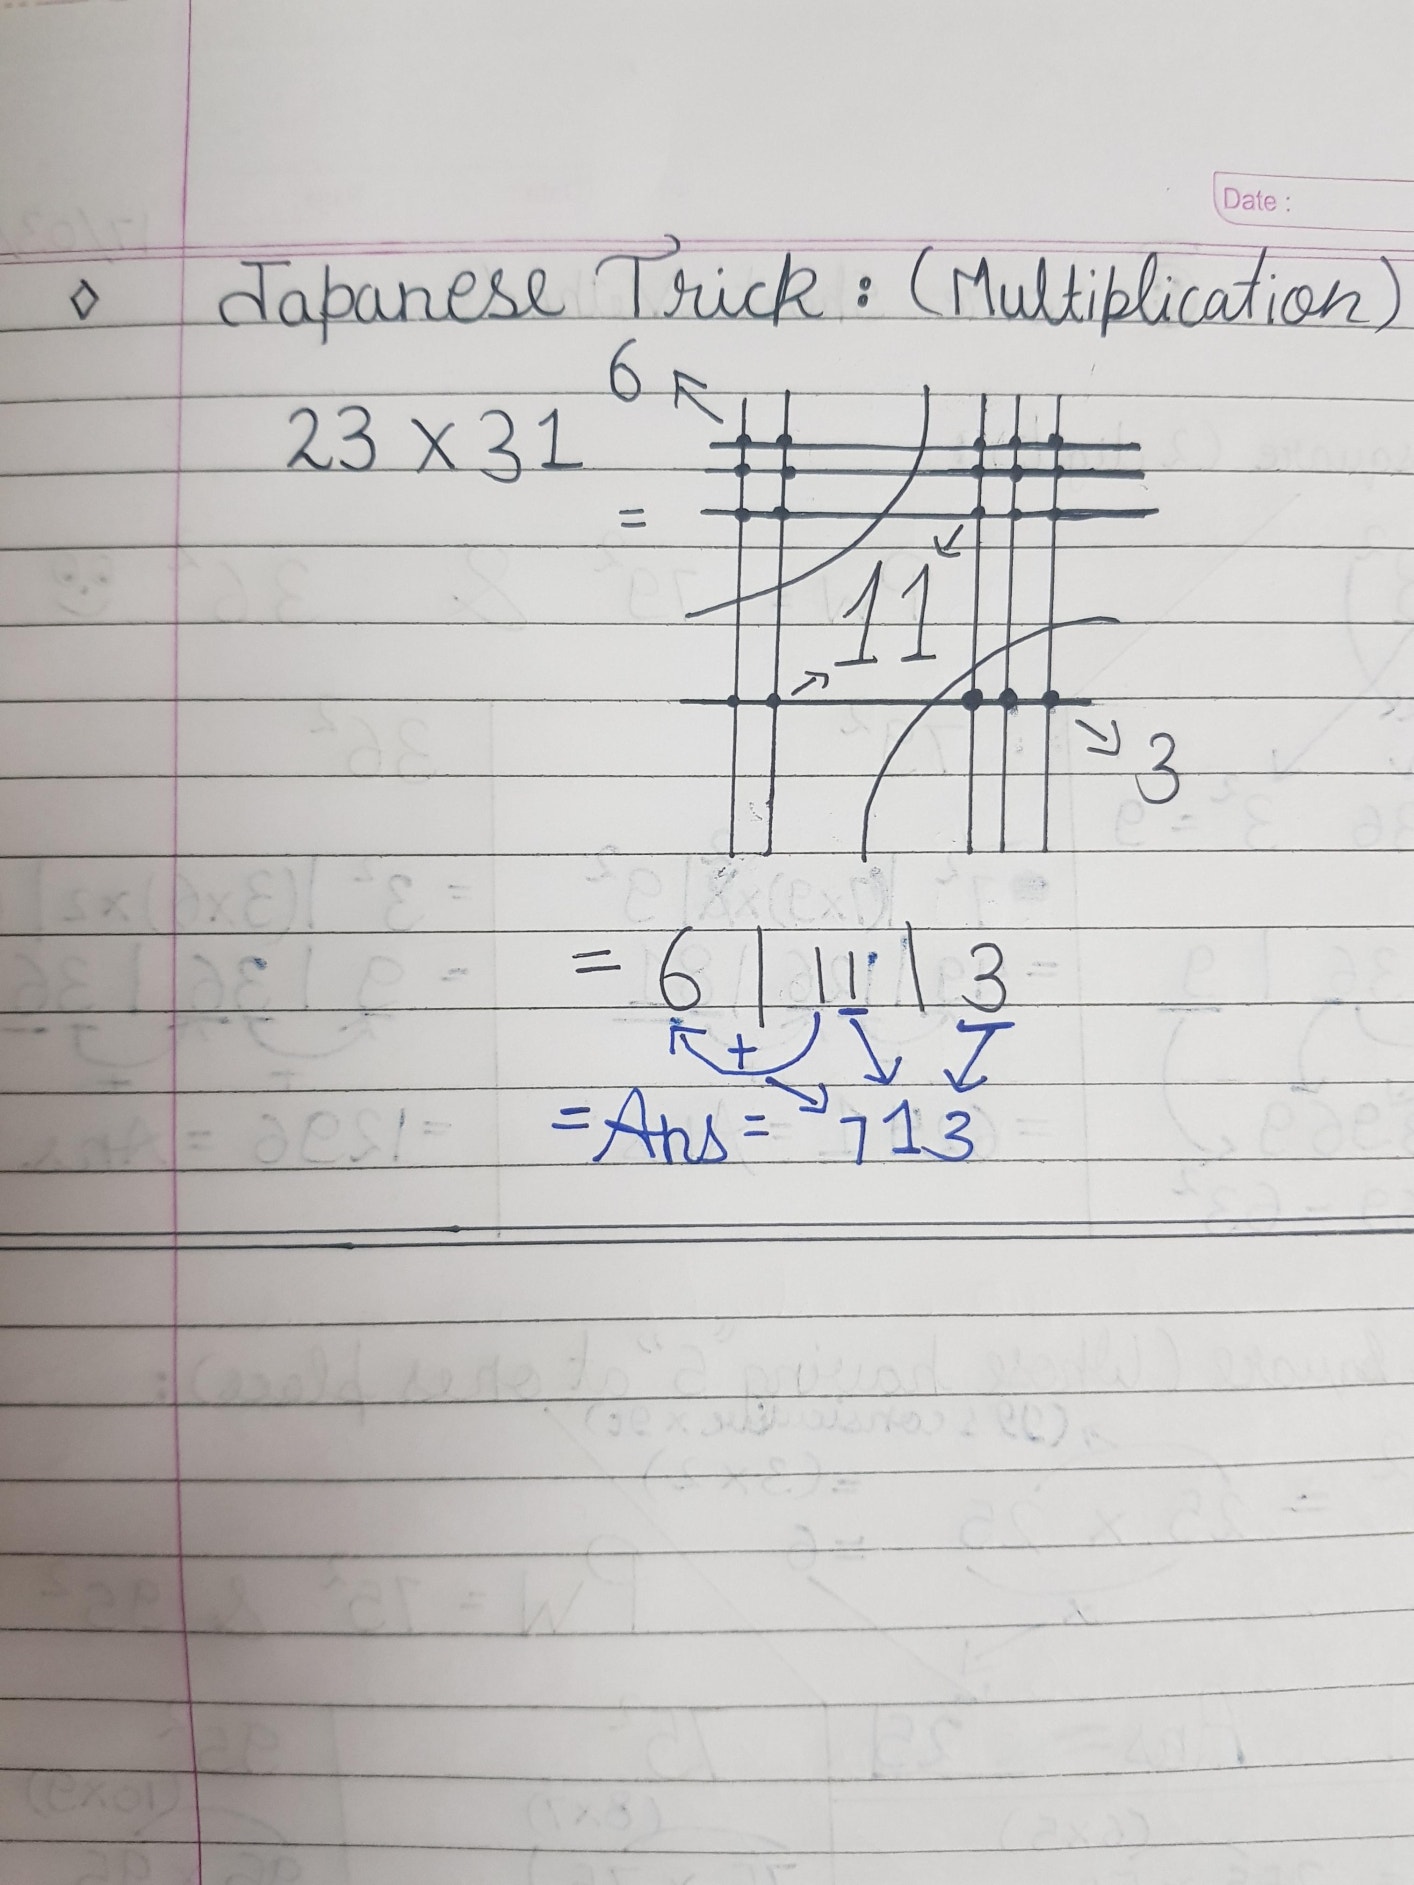 Date :
◊ Japanese Trick : (Multiplication)
6
23 x 31
=
11
3
= 6 | 11 | 3
+
= Ans = 713